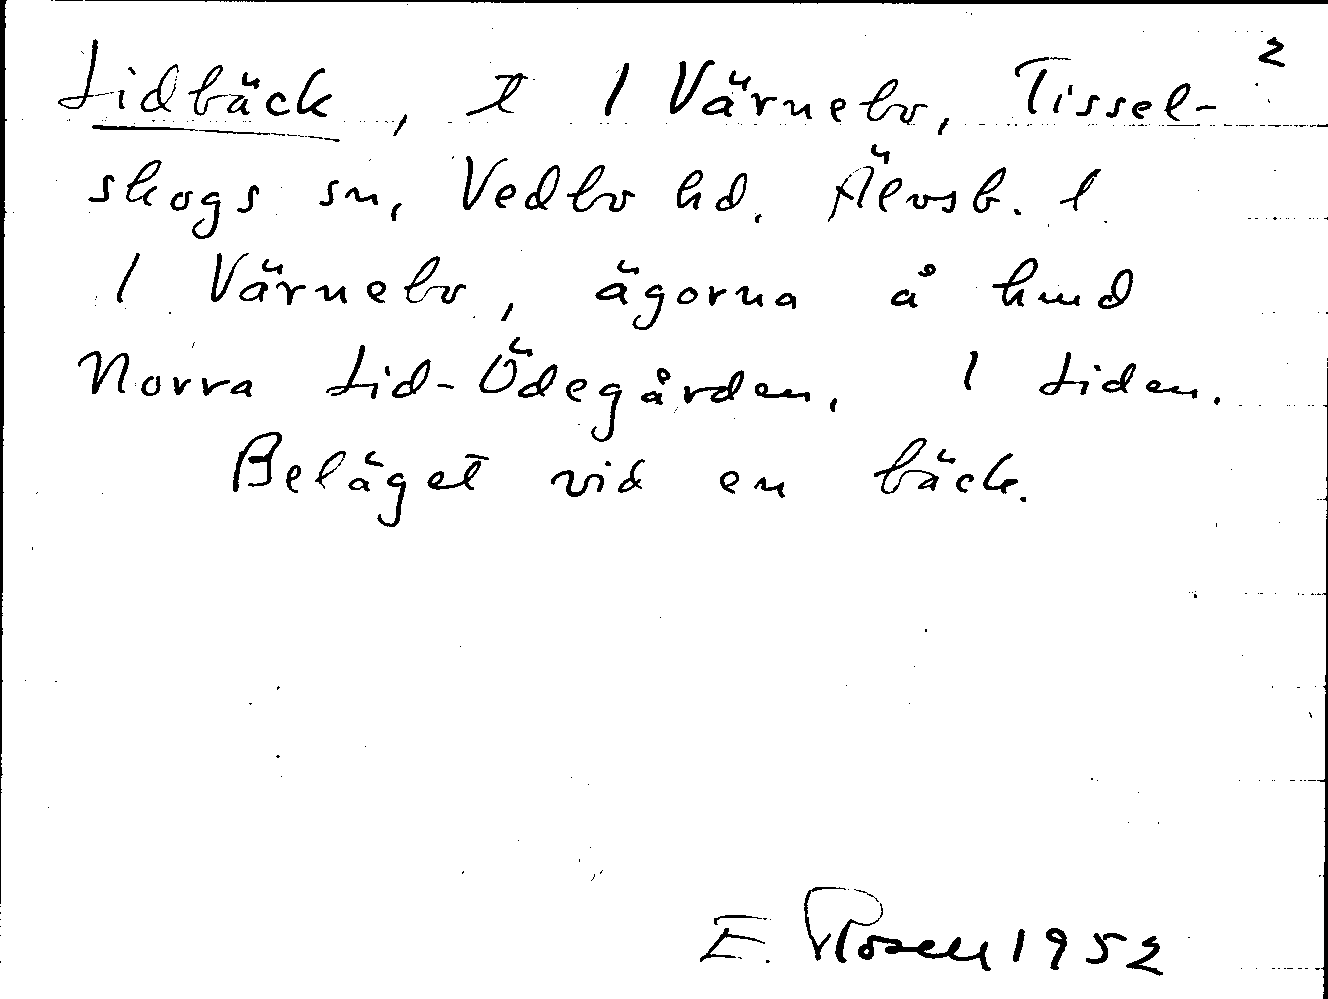 2
Lidbäck, t 1 Värnebo, Tissel-
skogs sn, Vedbo hd. Älvsb. l
1 Värnebo, ägorna å hmd
Norra Lid-Ödegården, 1 Liden.
Beläget vid en bäck.
E. Rosell 1952